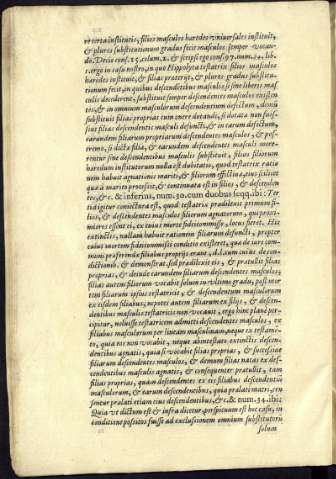 re certa institutis, filios masculos haredes vniuersales instituit,
& plures substitutionum gradus fecit masculos semper vocan-
do. Decio conf. 25. colum. 2. & scripsi ego conf. 97. num. 24. lib.
ergo in casu nostro, in quo Hippolyta testatrix filios masculos
haredes instituit, & filias praterijt, & plures gradus substitu-
tionum fecit, in quibus descendentibus masculis si sine liberis mas
culis decederent, substituit semper descendentes masculos existen
tes, & in omnium masculorum descendentium defectum, demum
substituit filias proprias tum onere dotandi, si dotata non fuis-
sius filias descendentis masculi defuncti, & in earum defectum
earundem filiarum propriarum descendentes masculos, & po-
stremo, si dicta filia, & earundem descendentes masculi more-
rentur sine descendentibus masculis substituit, filios filiarum
earundem institutorum nulla est dubitatio, quod testatrix ratio
nem habuit agnationis mariti, & filiorum effecta, eius scilicet
qua à marito processit, & continuata est in filios, & descenden
tes, & c. & inferius, num. 30. cum duobus seqq. ibi: Ter
tia igitur coniectura est, quod testatrix praedilexit primum fi-
lios, & descendentes masculos filiorum agnatorum, qui premi-
mortis essent ei, ex cuius morte fideicommisso, locus fieret. His
extinctis, nullam habuit rationem filiarum defuncti, propter
cuius mortem fideicommissi conditio existeret, qua de iure com-
muni praferenda filiabus proprijs erant
dicionibus, & demonstrat, sed praedilexit eis, & pratulit filias
proprias, & deinde earundem descendentes masculos;
filias autem filiorum vocabit solum in vltimo gradu, post mor
tem filiarum ipsius testatricis, & descendentium masculorum
ex eisdem filiabus, nepotes autem filiarum ex filijs, & descen-
dentibus masculis testatricis non vocauit, ergo hinc plane per-
cipitur, noluisse testatricem admitti descendentes masculos, ex
filiabus masculorum per lineam masculinam, neque ex testamen
to, quia eos non vocabit, neque ab intestato extinctis descen-
dentibus agnatis, quia si vocabit filias proprias, & successiue
filiarum descendentes masculos, & demum filias natas ex des-
cendentibus masculis agnatis, & consequenter pratulit, tam
filias proprias, quam descendentes ex eis filiabus descendenti
masculorum, & earum descendentibus, quia pralati mari, cen
sentur pralati etiam eius descendentibus, & c. & num. 34. ibi:
Quia vt dictum est & infra dicetur, perspicuum est hoc casu, in
conditione positos fuisse ad exclusionem omnium substitutoru
solum